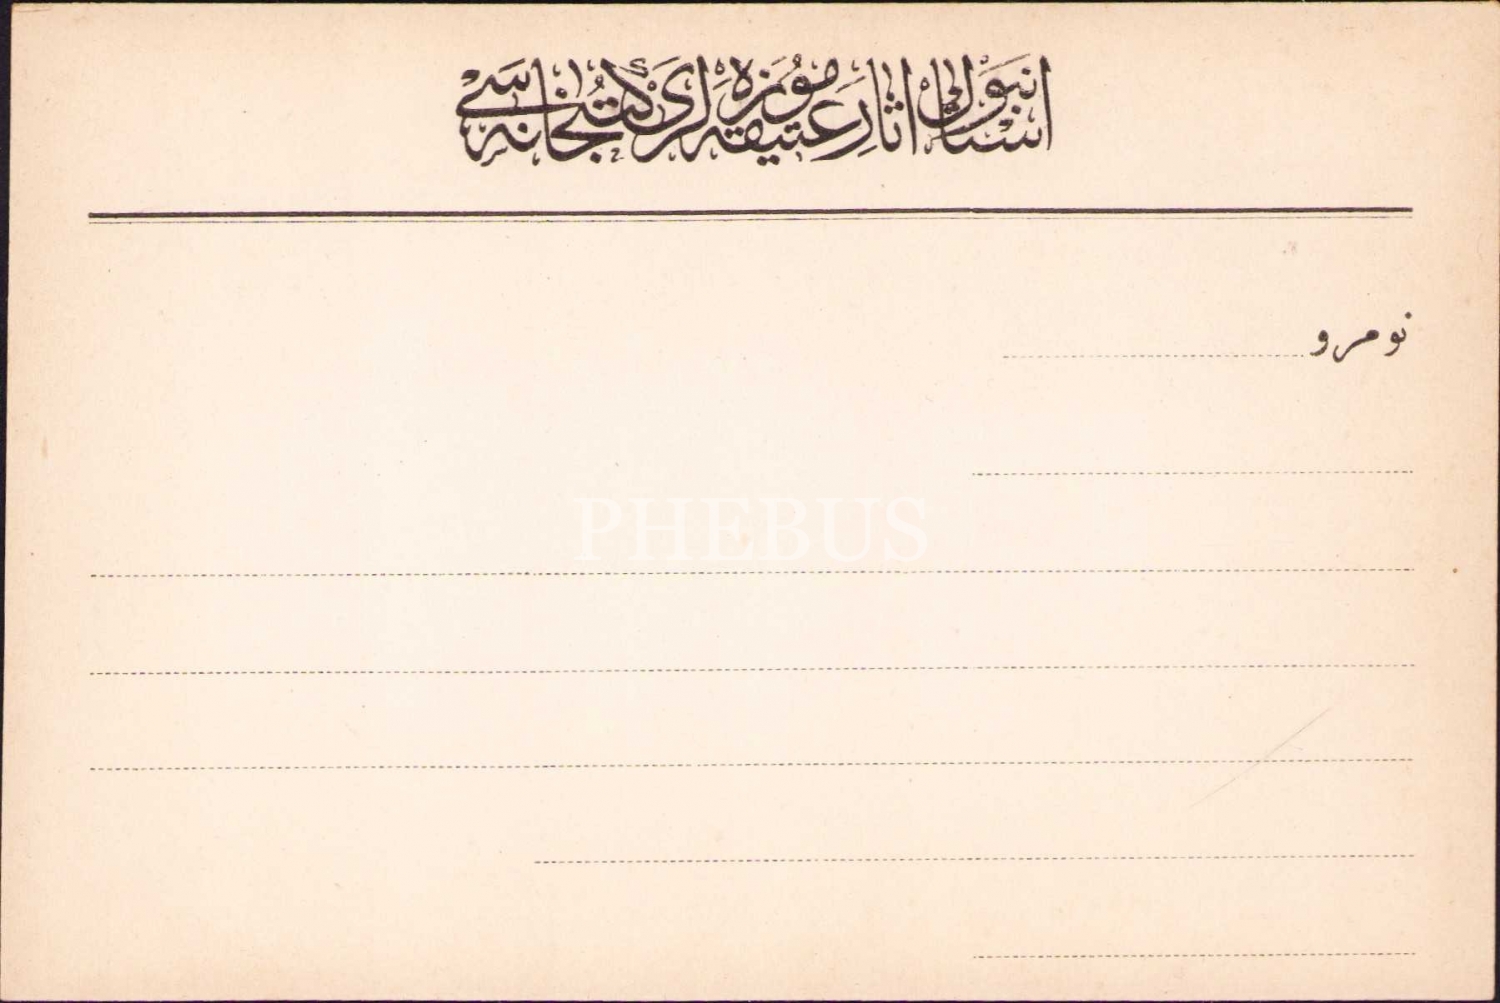 استانبول آثار عتیقه موزه‌لری کتبخانه‌سی
نومرو
PHEBUS